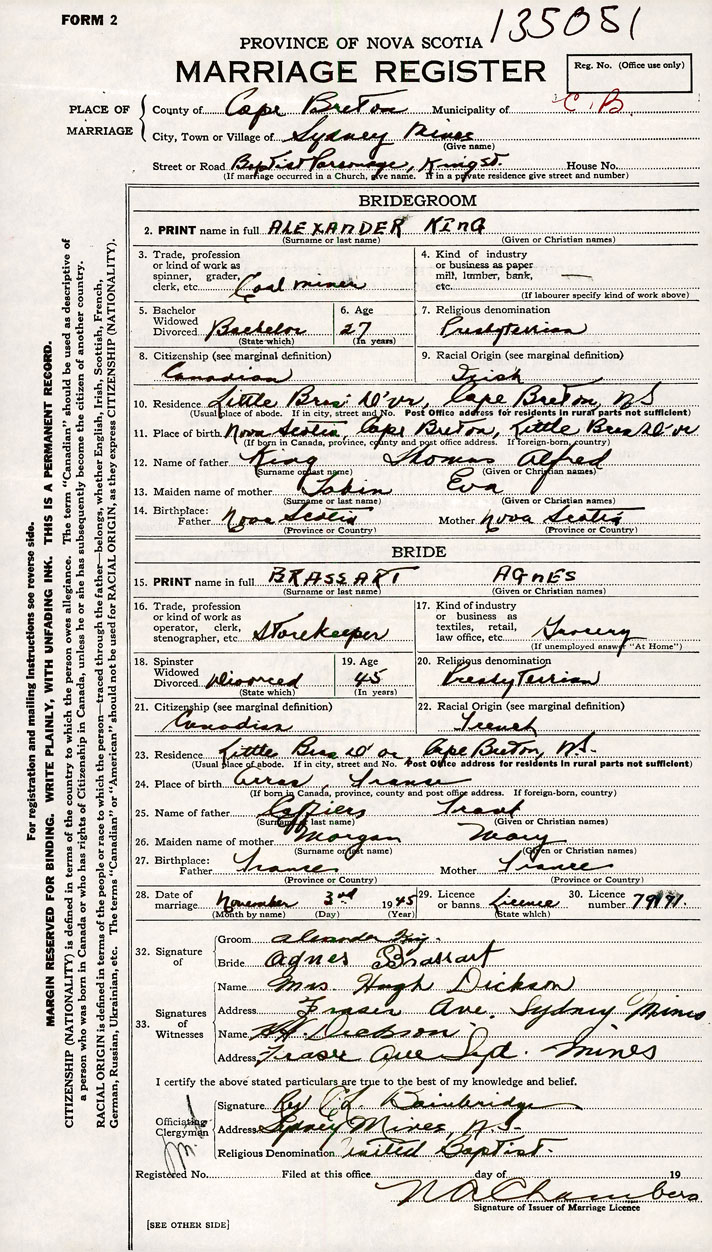 FORM 2
135051
PROVINCE OF NOVA SCOTIA
MARRIAGE REGISTER
Reg. No. (Office use only)
PLACE OF MARRIAGE
County of Cape Breton Municipality of C.B.
City, Town or Village of Sydney Mines
(Give name)
Street or Road Baptist Parsonage, King St. House No.
(If marriage occurred in a Church, give name. If in a private residence give street and number)
BRIDEGROOM
2. PRINT name in full ALEXANDER KING
(Surname or last name) (Given or Christian names)
3. Trade, profession or kind of work as spinner, grader, clerk, etc. Coal miner
4. Kind of industry or business as paper mill, lumber, bank, etc. —
(If labourer specify kind of work above)
5. Bachelor Widowed Divorced Bachelor
(State which)
6. Age 27
(In years)
7. Religious denomination
Presbyterrian
8. Citizenship (see marginal definition)
Canadian
9. Racial Origin (see marginal definition)
Irish
10. Residence Little Bras D'or, Cape Breton, NS
(Usual place of abode. If in city, street and No. Post Office address for residents in rural parts not sufficient)
11. Place of birth Nova Scotia, Cape Breton, Little Bras D'or
(If born in Canada, province, county and post office address. If foreign-born, country)
12. Name of father King Thomas Alfred
(Surname or last name) (Given or Christian names)
13. Maiden name of mother Tobin Eva
(Surname or last name) (Given or Christian names)
14. Birthplace: Father Nova Scotia Mother Nova Scotia
(Province or Country) (Province or Country)
BRIDE
15. PRINT name in full BRASSART AGNES
(Surname or last name) (Given or Christian names)
16. Trade, profession or kind of work as operator, clerk, stenographer, etc. Storekeeper
17. Kind of industry or business as textiles, retail, law office, etc. Grocery
(If unemployed answer "At Home")
18. Spinster Widowed Divorced Divorced
(State which)
19. Age 45
(In years)
20. Religious denomination
Presbyterrian
21. Citizenship (see marginal definition)
Canadian
22. Racial Origin (see marginal definition)
French
23. Residence Little Bras D'or, Cape Breton, N.S.
(Usual place of abode. If in city, street and No. Post Office address for residents in rural parts not sufficient)
24. Place of birth Arras, France
(If born in Canada, province, county and post office address. If foreign-born, country)
25. Name of father Caffiers Frank
(Surname or last name) (Given or Christian names)
26. Maiden name of mother Morgan Mary
(Surname or last name) (Given or Christian names)
27. Birthplace: Father France Mother France
(Province or Country) (Province or Country)
28. Date of marriage November 3rd 1945
(Month by name) (Day) (Year)
29. Licence or banns Licence
(State which)
30. Licence number
32. Signature of
Groom Alexander King.
Bride Agnes Brassart
33. Signatures of Witnesses
Name Mrs. Hugh Dickson
Address Fraser Ave. Sydney Mines
Name H. Dickson
Address Fraser Ave Syd. Mines
I certify the above stated particulars are true to the best of my knowledge and belief.
Officiating Clergyman
Signature Rev Bainbridge
Address Sydney Mines, N.S.
Religious Denomination United Baptist.
Registered No. Filed at this office day of 19
Chambers
Signature of Issuer of Marriage Licence
[SEE OTHER SIDE]
For registration and mailing instructions see reverse side.
MARGIN RESERVED FOR BINDING. WRITE PLAINLY, WITH UNFADING INK. THIS IS A PERMANENT RECORD.
CITIZENSHIP (NATIONALITY) is defined in terms of the country to which the person owes allegiance. The term "Canadian" should be used as descriptive of
a person who was born in Canada or who has rights of Citizenship in Canada, unless he or she has subsequently become the citizen of another country.
RACIAL ORIGIN is defined in terms of the people or race to which the person—traced through the father—belongs, whether English, Irish, Scottish, French,
German, Russian, Ukrainian, etc. The terms "Canadian" or "American" should not be used for RACIAL ORIGIN, as they express CITIZENSHIP (NATIONALITY).